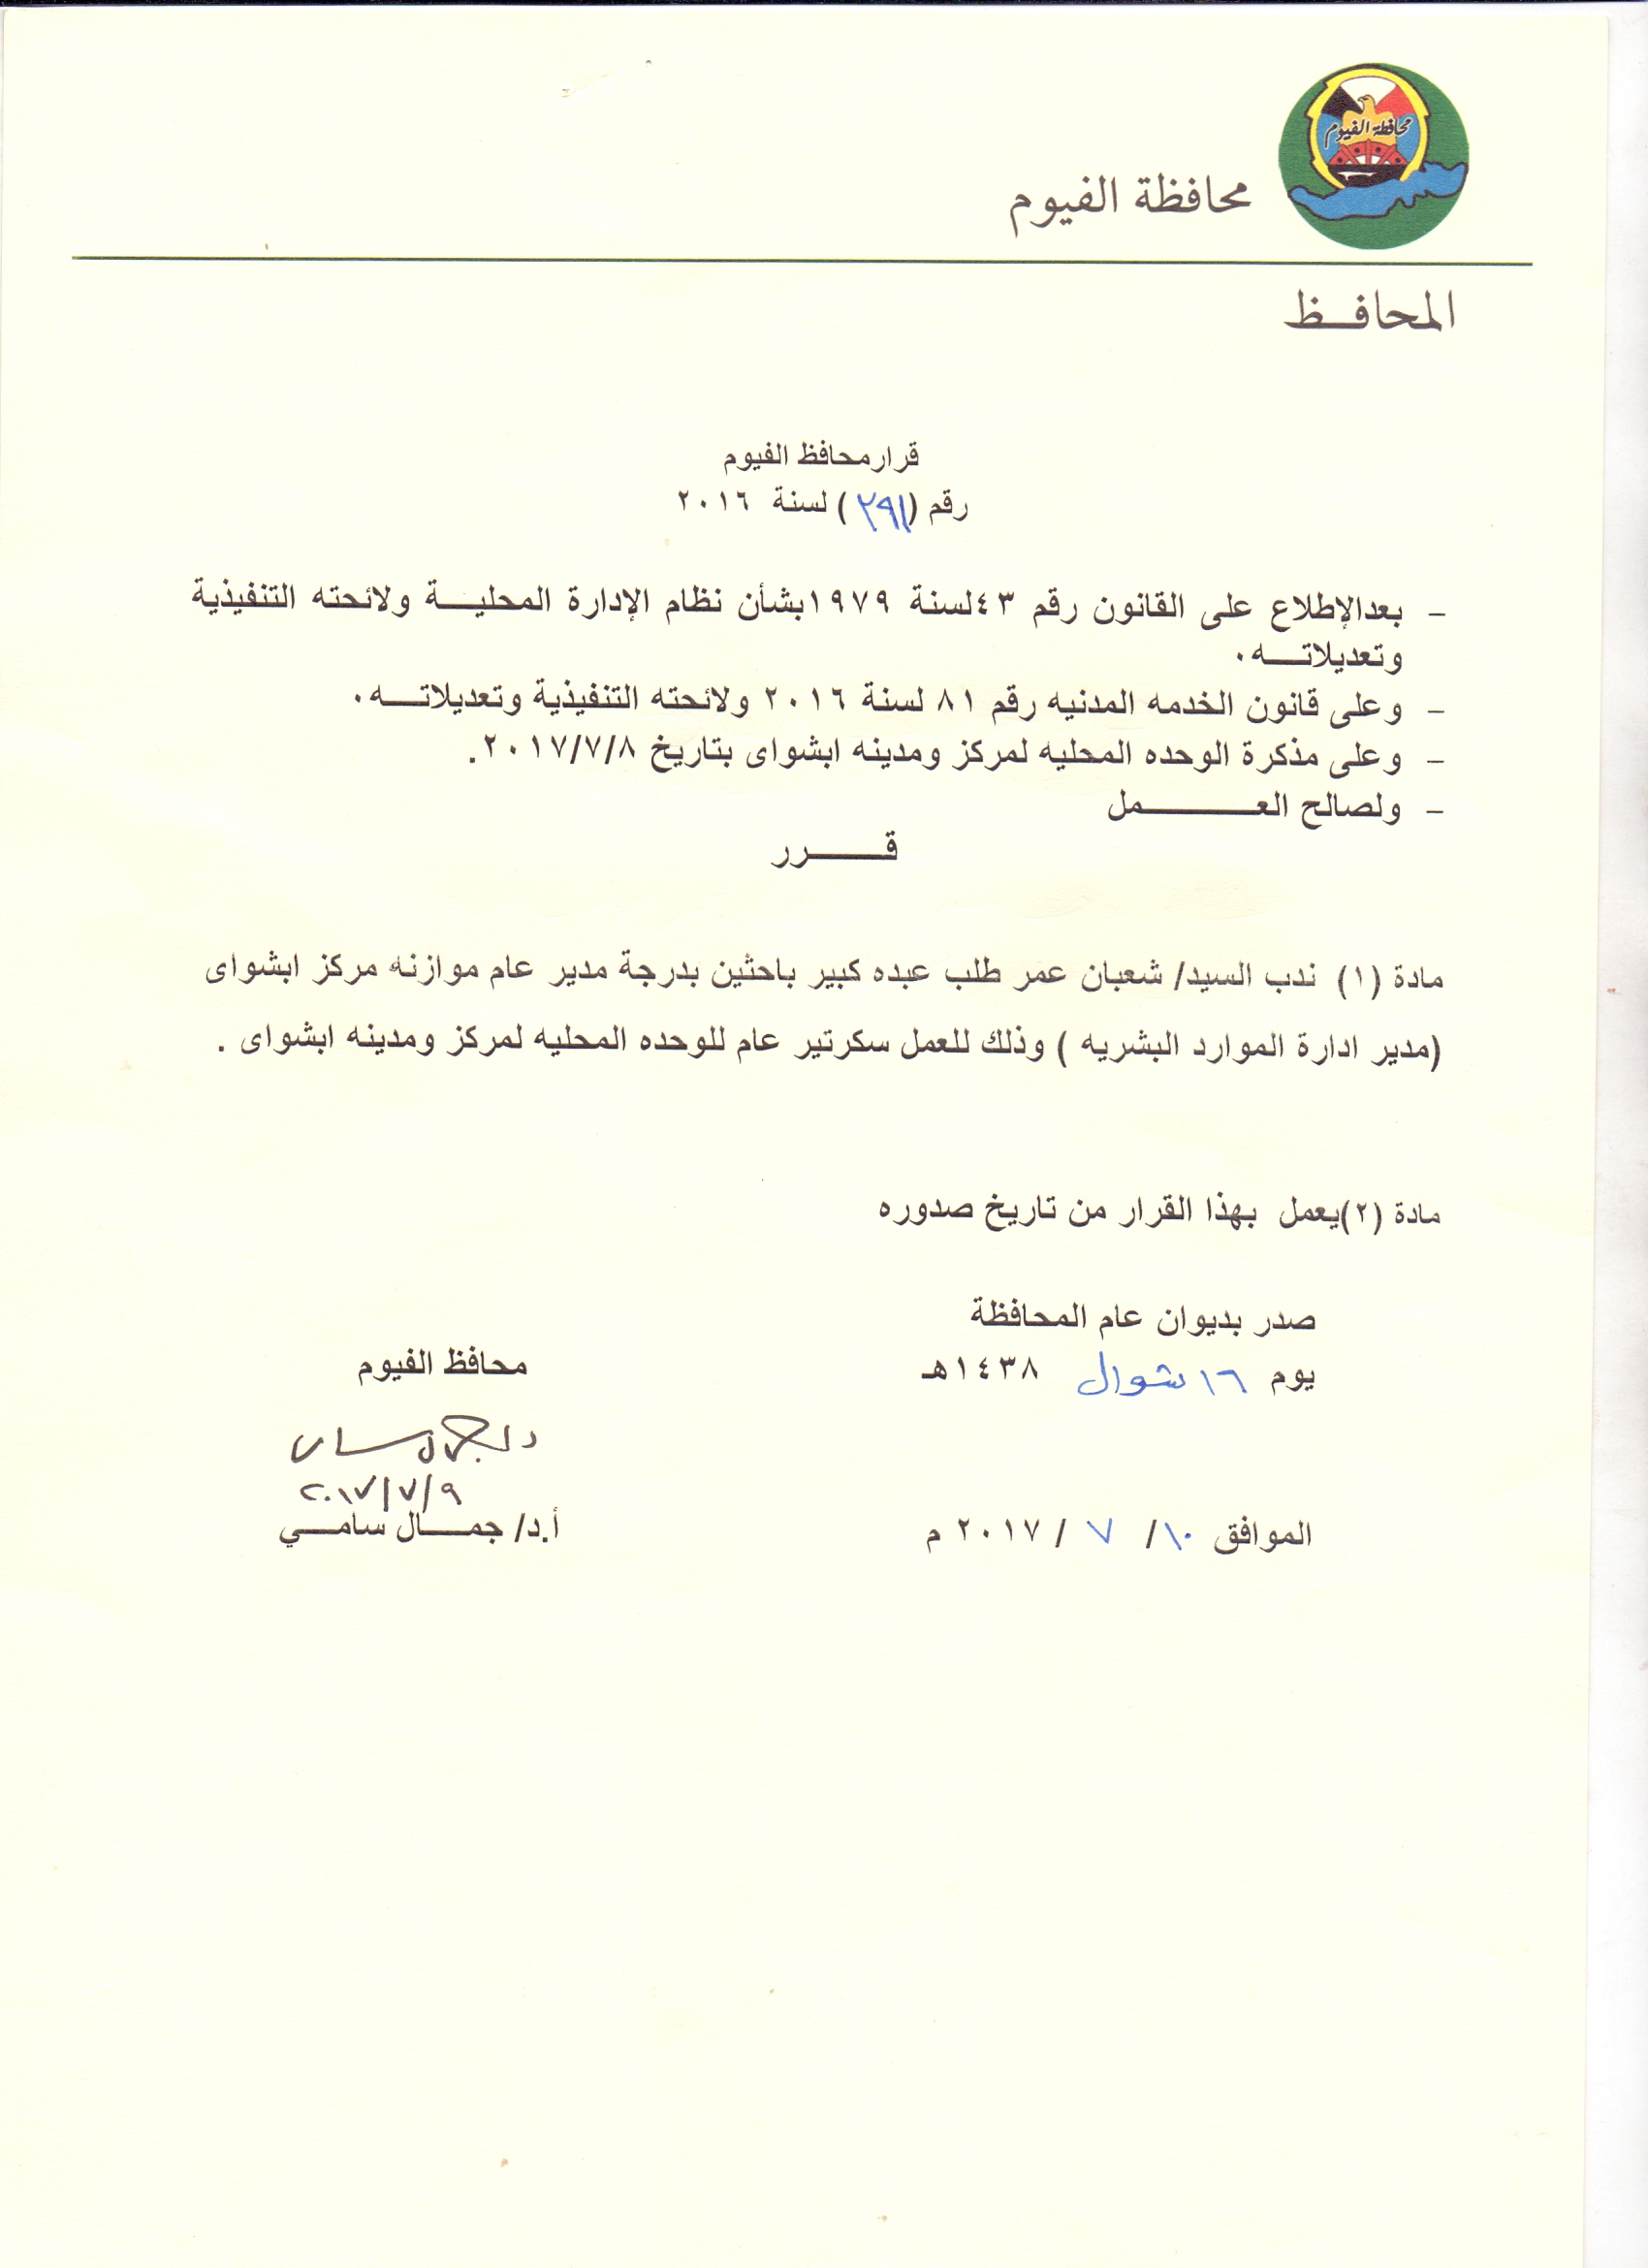 محافظة الفيوم
محافظة الفيوم
المحافــظ
قرارمحافظ الفيوم
رقم (٢٩١) لسنة ٢٠١٦
- بعدالإطلاع على القانون رقم ٤٣لسنة ١٩٧٩بشأن نظام الإدارة المحليـــة ولائحته التنفيذية
وتعديلاتـــه.
- وعلى قانون الخدمه المدنيه رقم ٨١ لسنة ٢٠١٦ ولائحته التنفيذية وتعديلاتـــه.
- وعلى مذكرة الوحده المحليه لمركز ومدينه ابشواى بتاريخ ٢٠١٧/٧/٨.
- ولصالح العـــــــمل
قـــــرر
مادة (١) ندب السيد/ شعبان عمر طلب عبده كبير باحثين بدرجة مدير عام موازنه مركز ابشواى
(مدير ادارة الموارد البشريه ) وذلك للعمل سكرتير عام للوحده المحليه لمركز ومدينه ابشواى .
مادة (٢)يعمل بهذا القرار من تاريخ صدوره
صدر بديوان عام المحافظة
يوم ١٦ شوال ١٤٣٨هـ
الموافق ١٠/ ٧ / ٢٠١٧ م
محافظ الفيوم
٢٠١٧/٧/٩
أ.د/ جمــــال سامـــي